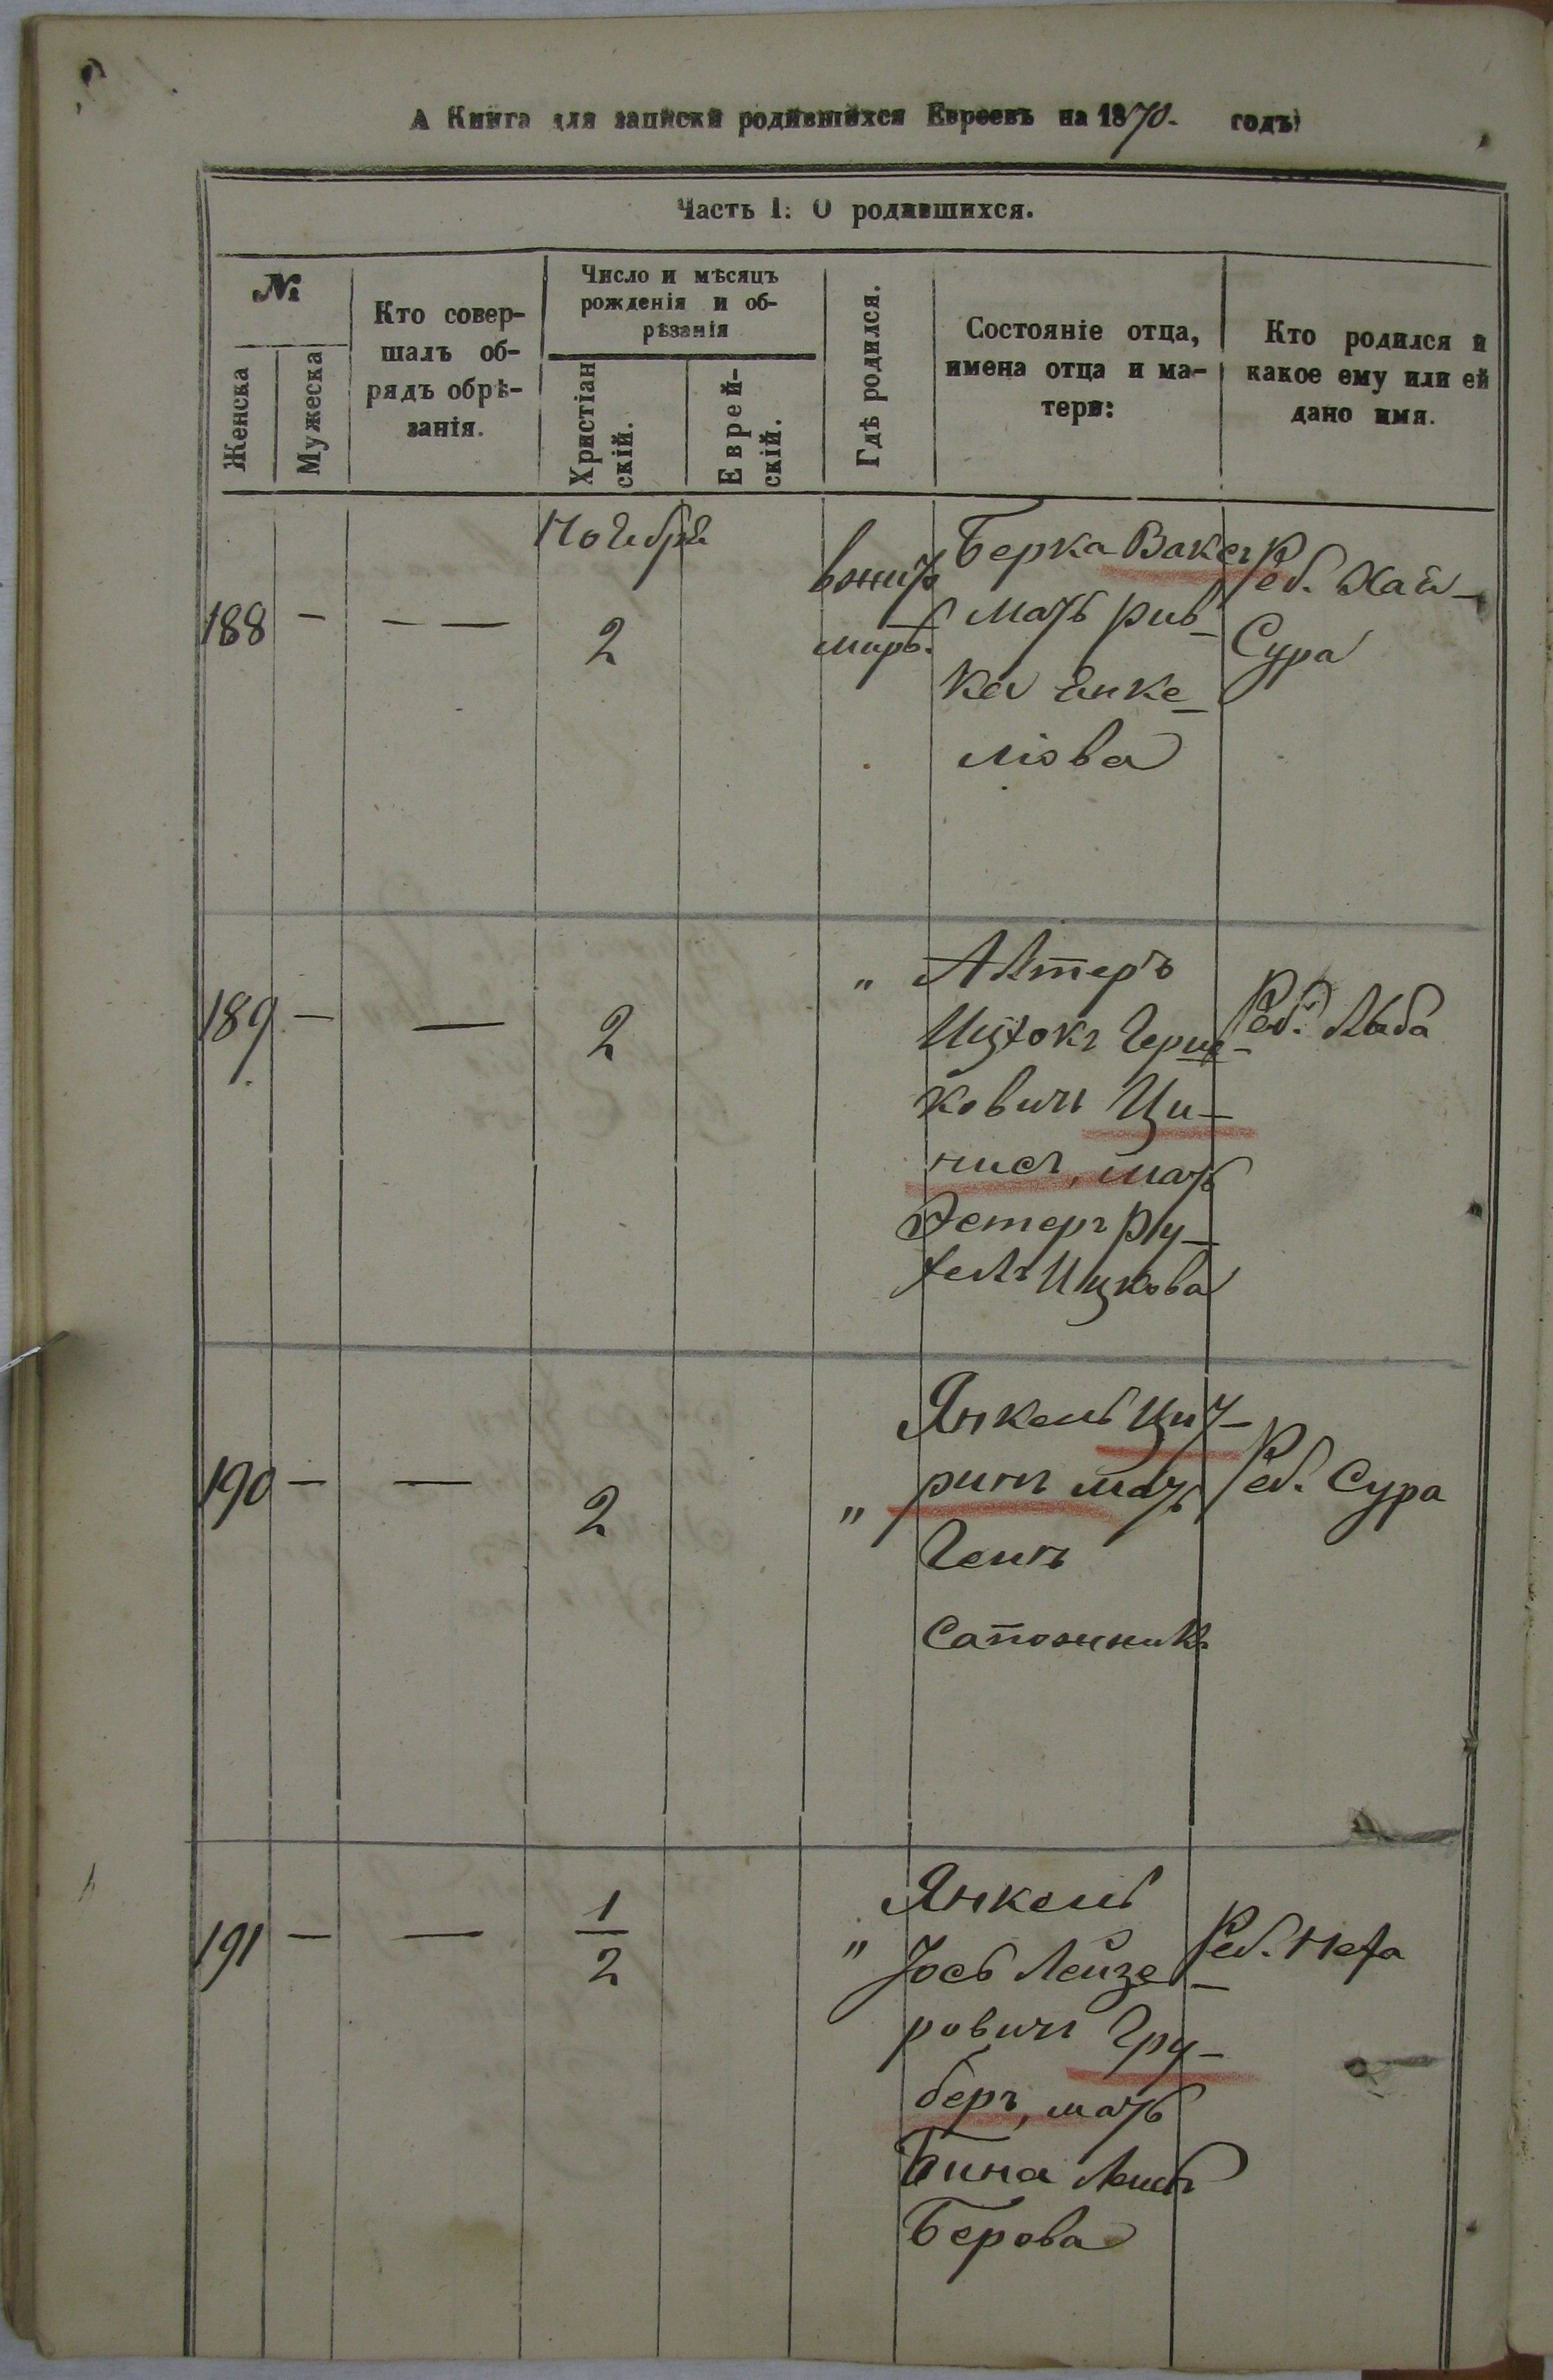 А Книга для записки родившихся Евреевъ на 1870. годъ
Часть I. О родившихся.
№
Женска
Мужеска
Кто совер-
шалъ об-
рядъ обрѣ-
занія.
Число и мѣсяцъ
рожденія и об-
рѣзанія
Христіан
скій.
Еврей-
скій.
Гдѣ родился.
Состояніе отца,
имена отца и ма-
тери:
Кто родился и
какое ему или ей
дано имя.
Ноября
188 — — — 2
Берка Вакеръ
мать рив-
ка Янке-
ліова
Реб. Хая-
Сура
189 — — 2 "
Алтеръ
Ицхокъ Герш-
ковичъ Ци-
нисъ, мать
Эстеръ Ру-
хель Ицкова
Реб. Люба
190 — — 2 "
Янкель Цит-
ринъ мать
Геня
Сапожникъ
Реб. Сура
191 — — 1/2 "
Янкель
Іось Лейзе-
ровичъ Гру-
беръ, мать
Бина Лейб
Берова
Реб. Неха